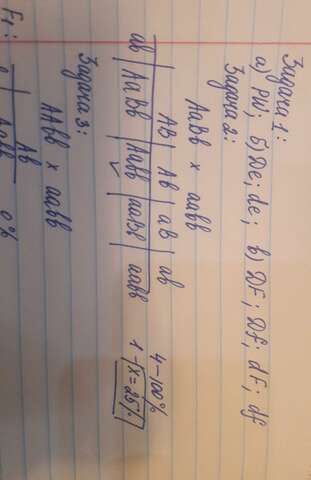 Задача 1:
а) PW; б) De; de; в) DF; Df; dF; df
Задача 2:
AaBb x aabb
AB | Ab | aB | ab 4 - 100%
ab | AaBb | Aabb | aaBb | aabb 1 - x = 25%
Задача 3:
AAbb x aabb
Ab
F1: Aabb 0%